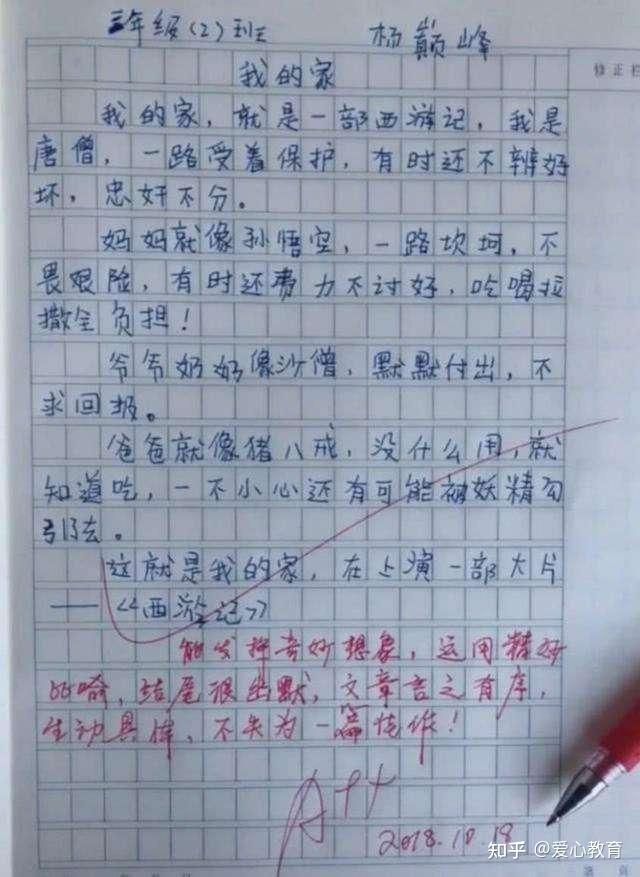 三年级(2)班 杨巅峰
修正栏
我的家
我的家，就是一部西游记，我是
唐僧，一路受着保护，有时还不辨好
坏，忠奸不分。
妈妈就像孙悟空，一路坎坷，不
畏艰险，有时还费力不讨好，吃喝拉
撒全负担！
爷爷奶奶像沙僧，默默付出，不
求回报。
爸爸就像猪八戒，没什么用，就
知道吃，一不小心还有可能被妖精勾
引去。
这就是我的家，在上演一部大片
——《西游记》
能发挥奇妙想象，运用精妙
比喻，结尾很幽默，文章言之有序，
生动具体，不失为一篇佳作！
A++
2018.10.18
知乎 @爱心教育